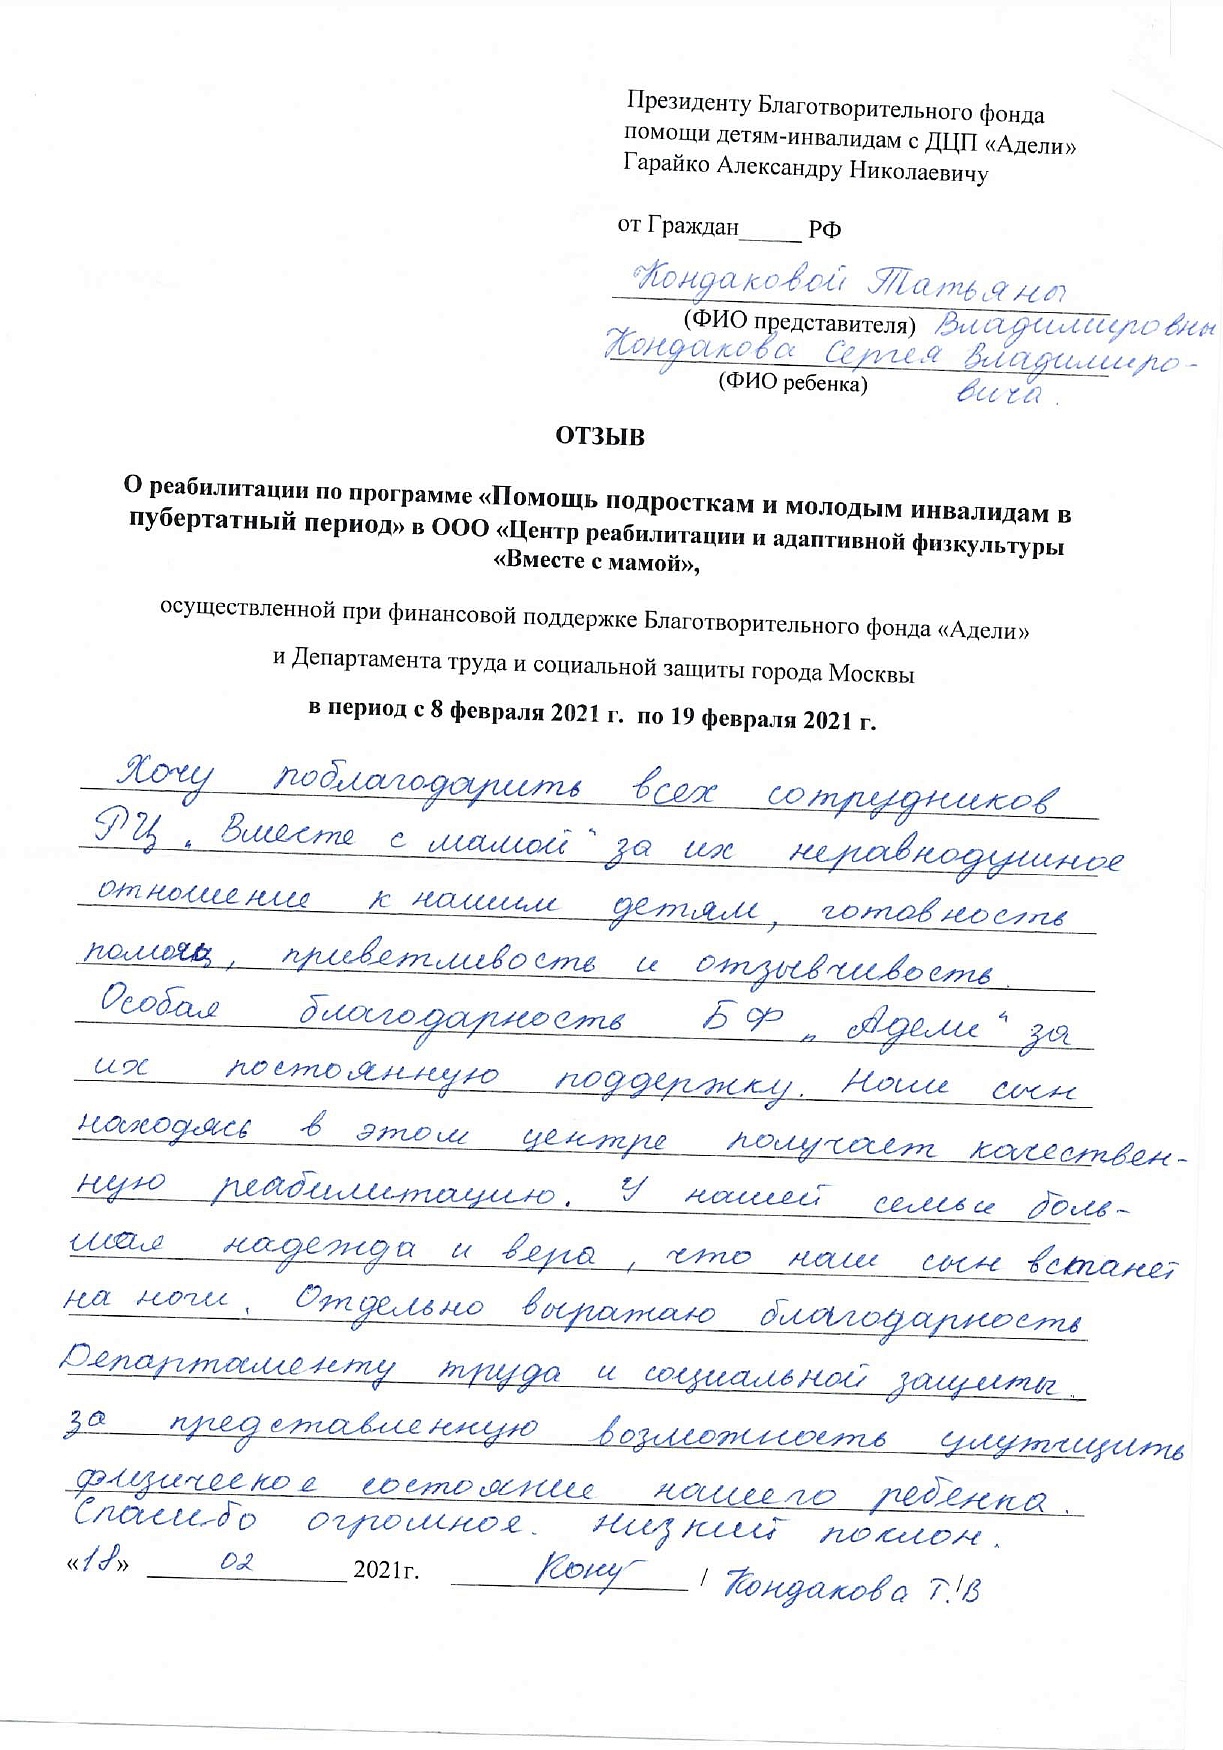 Президенту Благотворительного фонда
помощи детям-инвалидам с ДЦП «Адели»
Гарайко Александру Николаевичу
от Граждан_____ РФ
Кондаковой Татьяны
(ФИО представителя) Владимировны
Кондакова Сергея Владимиро-
(ФИО ребенка) вича.
ОТЗЫВ
О реабилитации по программе «Помощь подросткам и молодым инвалидам в
пубертатный период» в ООО «Центр реабилитации и адаптивной физкультуры
«Вместе с мамой»,
осуществленной при финансовой поддержке Благотворительного фонда «Адели»
и Департамента труда и социальной защиты города Москвы
в период с 8 февраля 2021 г. по 19 февраля 2021 г.
Хочу поблагодарить всех сотрудников
РЦ „Вместе с мамой“ за их неравнодушное
отношение к нашим детям, готовность
помочь, приветливость и отзывчивость.
Особая благодарность БФ „Адели“ за
их постоянную поддержку. Наш сын
находясь в этом центре получает качествен-
ную реабилитацию. У нашей семьи боль-
шая надежда и вера, что наш сын встанет
на ноги. Отдельно выражаю благодарность
Департаменту труда и социальной защиты
за представленную возможность улутчщить
физическое состояние нашего ребенка.
Спасибо огромное. Низкий поклон.
«18» 02 2021г. / Кондакова Т.В